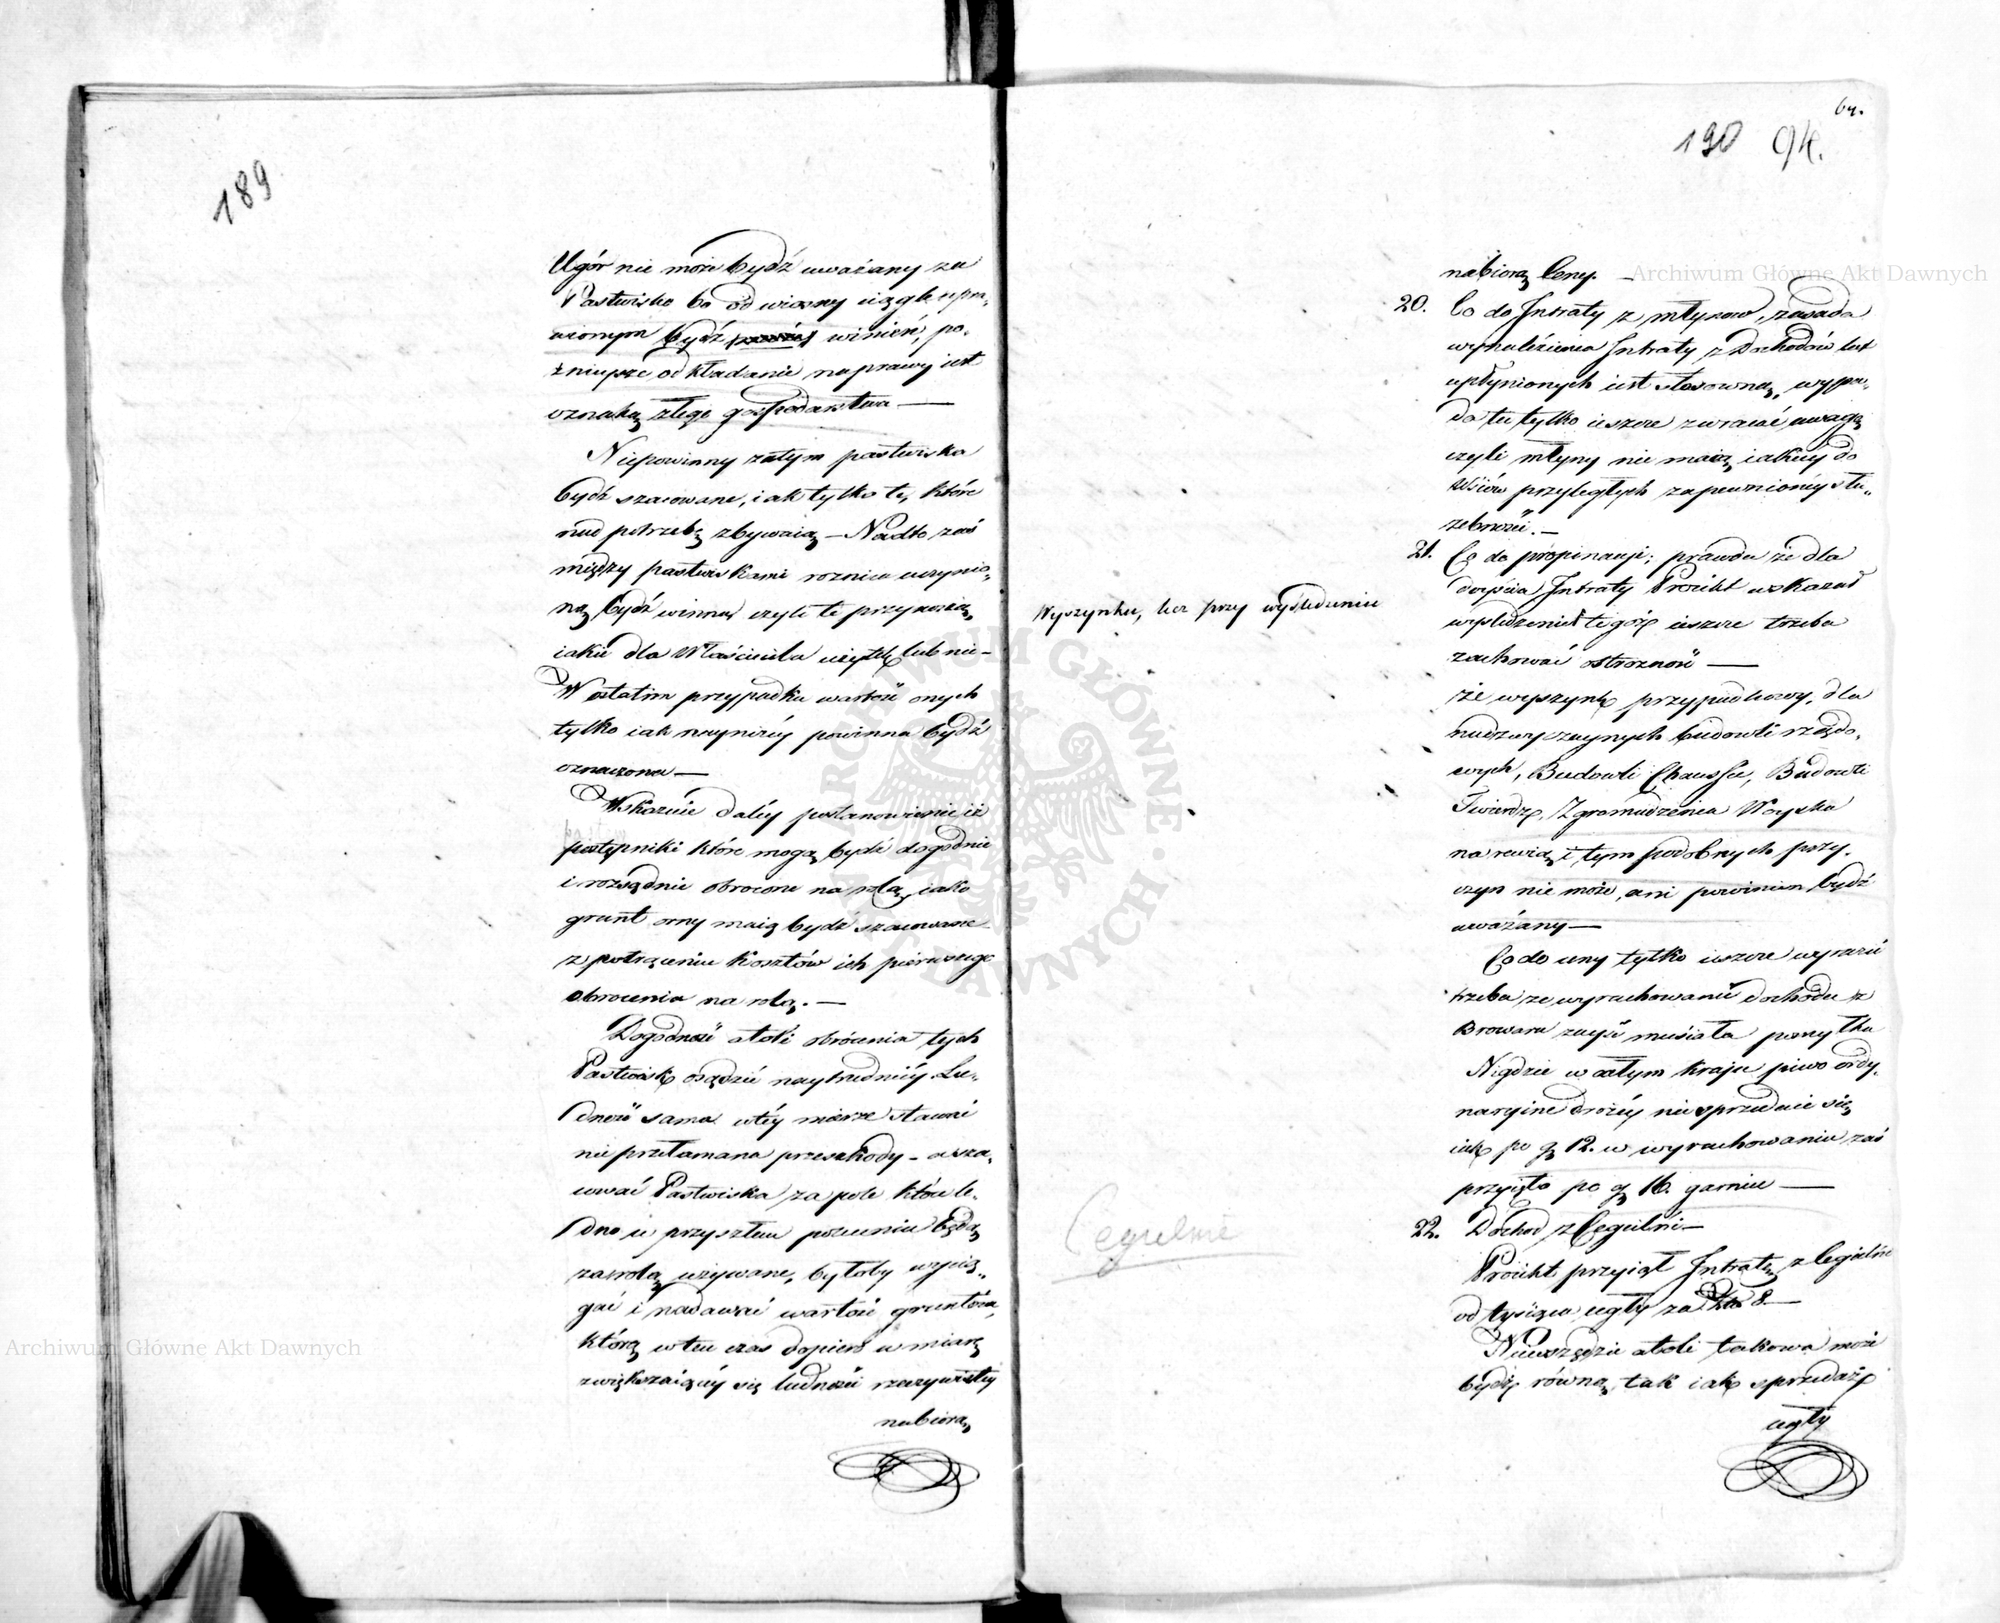 189
Ugór nie może bydź uważany za
Pastwisko bo od wiosny ciągle upra„
wionym bydź winień, po„
źnieysze odkładanie naprawy iest
oznaką złego gospodarstwa —
Niepowinny zatym pastwiska
bydź szacowane, iak tylko te, które
nad potrzebę zbywaią — Nadto zaś
między pastwiskami roznica uczynio„
ną bydź winna czyli te przynoszą
iakie dla Właściciela użytki lub nie —
W ostatim przypadku wartość onych
tylko iak nayniżéy powinna bydź
oznaczona —
Wskazuie daléy postanowienie iż
pastwniki które mogą bydź dogodnie
i rozsądnie obrocone na rolą, iako
grunt orny maią bydź szacowane
z potrąceniu kosztów ich pierwszego
obrocenia na rolą. —
Dogodność atoli obrócenia tych
Pastwisk osądzić naytrudniéy. Lu„
dność sama w téy mierze stawi
nie przełamana przeszkody — a sza„
cować Pastwiska za pole które le„
dno w przyszłem pozuciu będą
za rolą używane, byłoby wycią„
gać i nadawać wartość gruntóm,
którą wten czas dopiero w miarę
zwiększaiącéy się ludności rzeczywistéy
nabiorą
64.
190 94.
nabiorą Ceny. —
20. Co do Intraty z młynow, zasada
wynalezienia Intraty z Dochodów lat
upłynionych iest stosowną, wypa„
da tu tylko ieszcze zwracać uwagę
czyli młyny nie maią iakiéy do
Wsiów przyległych zapewnionéy słu„
żebności. —
21. Co do propinacyi; prawda że dla
doyścia Intraty Proiekt wskazał
wyśledzenie tegóż ieszcze trzeba
Wyszynku, lecz przy wyśledzeniu
zachować ostrozność —
że wyszynk przypadkowy, dla
nadzwyczaynych budowli rządo„
wych, Budowli Chaussée, Budowli
Twierdz, Zgromadzenia Woyska
na rewią i tym podobnych przy„
czyn nie może, ani powinien bydź
uważany —
Co do ceny tylko ieszcze wyrazić
trzeba ze wyrachowanie dochodu z
Browaru zayść musiała pomyłka
Nigdzie w całym kraju piwo ordy„
naryine drożéy nie sprzedaie się
iak po gr 12. w wyrachowaniu zaś
przyięto po gr 16. garniec —
Cegielnie
22. Dochod z Cegielni —
Proiekt przyiął Intratę z Cegielni
od tysiąca cegły za 8. —
Niewszędzie atoli takowa może
bydź równą, tak iak sprzedaż
cegły
ARCHIWUM GŁÓWNE AKT DAWNYCH
Archiwum Główne Akt Dawnych
Archiwum Główne Akt Dawnych